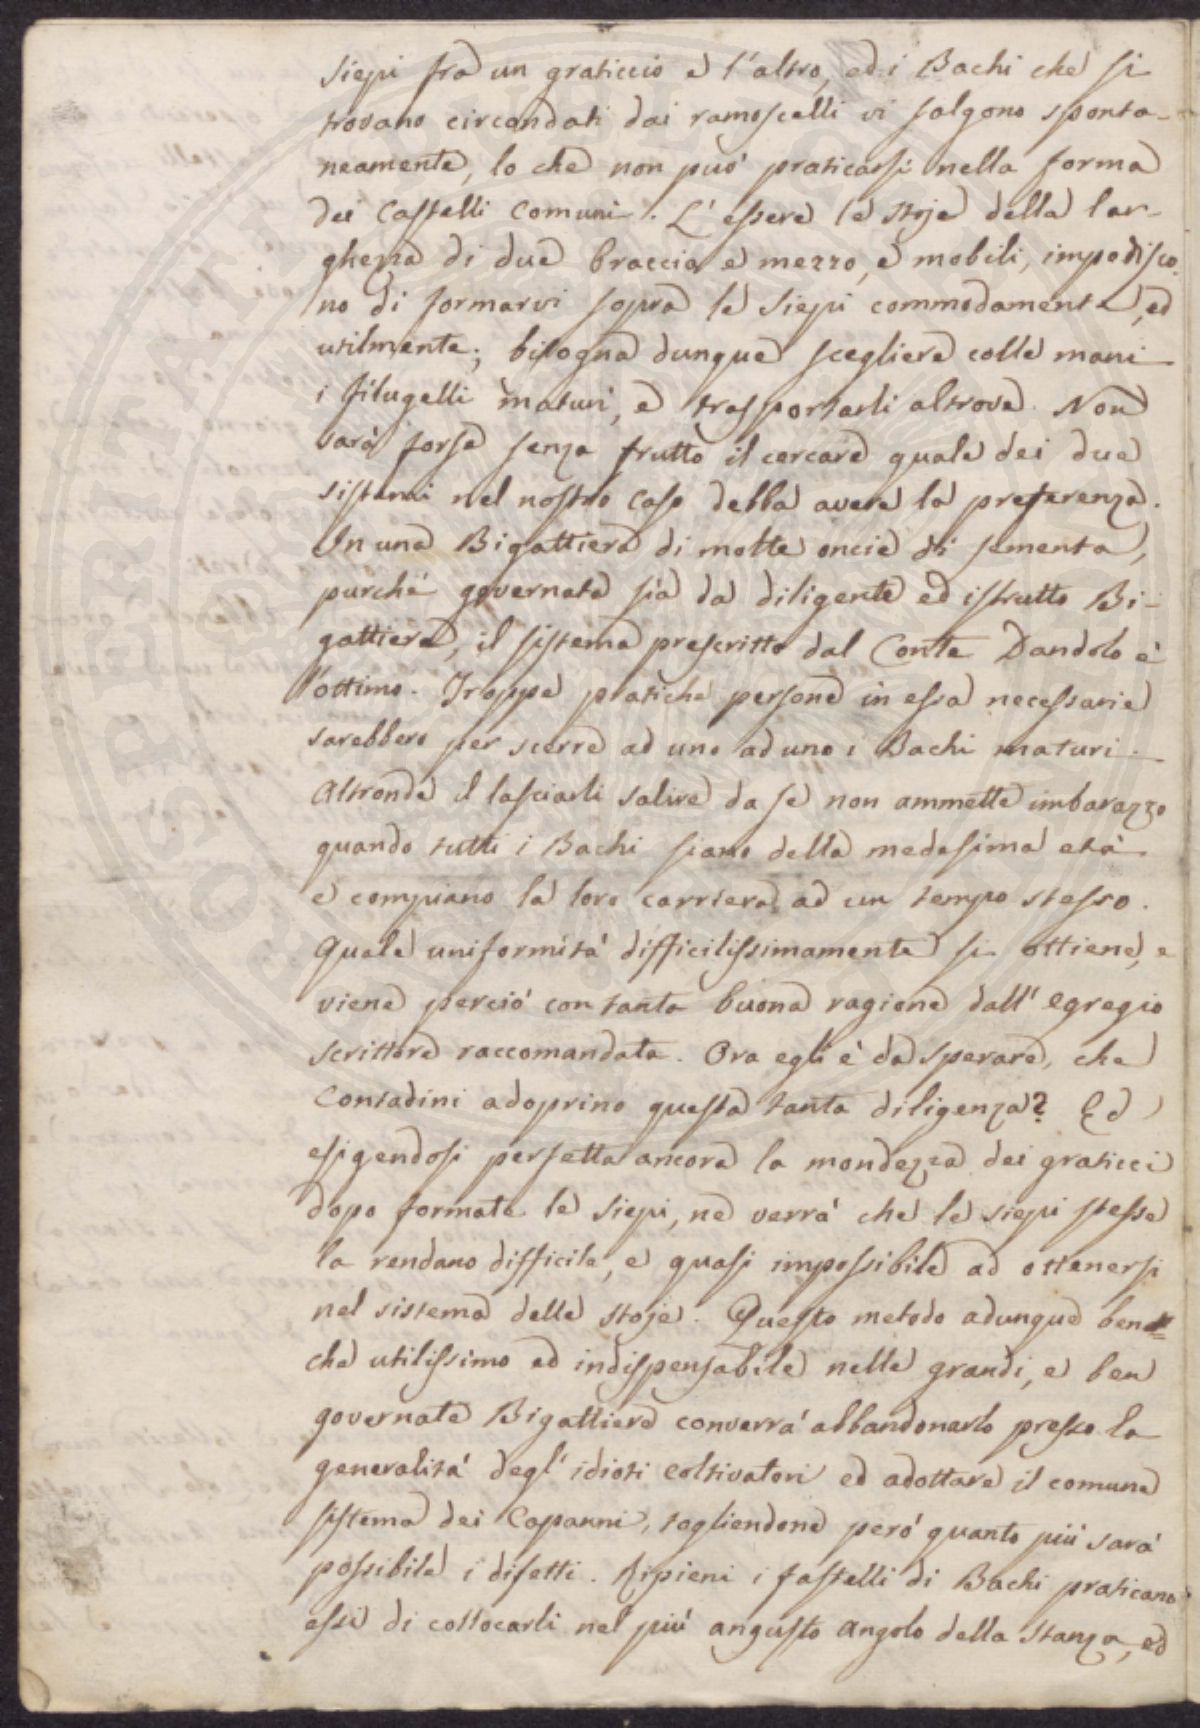 siepi fra un graticcio e l'altro, ed i Bachi che si
trovano circondati dai ramoscelli vi salgono sponta-
neamente, lo che non può praticarsi nella forma
dei Castelli comuni. L'essere le stoje della lar-
ghezza di due braccia e mezzo, e mobili, impedisco
no di formarvi sopra le siepi commodamente, ed
utilmente; bisogna dunque scegliere colle mani
i filugelli maturi, e trasportarli altrove. Non
sarà forse senza frutto il cercare quale dei due
sistemi nel nostro caso debba avere la preferenza.
In una Bigattiera di molte oncie di sementa,
purchè governata sia da diligente ed istrutto Bi-
gattiere, il sistema prescritto dal Conte Dandolo è
l'ottimo. Troppe pratiche persone in essa necessarie
sarebbero per scerre ad uno ad uno i Bachi maturi.
Altronde il lasciarli salire da se non ammette imbarazzo
quando tutti i Bachi siano della medesima età
e compiano la loro carriera ad un tempo stesso.
Quale uniformità difficilissimamente si ottiene, e
viene perciò con tanta buona ragione dall' egregio
scrittore raccomandata. Ora egli è da sperare, che
Contadini adoprino questa tanta diligenza? Ed
esigendosi perfetta ancora la mondezza dei graticci
dopo formate le siepi, ne verrà che le siepi stesse
la rendano difficile, e quasi impossibile ad ottenersi
nel sistema delle stoje. Questo metodo adunque ben
che utilissimo ed indispensabile nelle grandi, e ben
governate Bigattiere converrà abbandonarlo presso la
generalità degl' idioti coltivatori ed adottare il comune
sistema dei Capanni, togliendone però quanto più sarà
possibile i difetti. Ripieni i fastelli di Bachi praticano
essi di collocarli nel più angusto angolo della stanza, ed